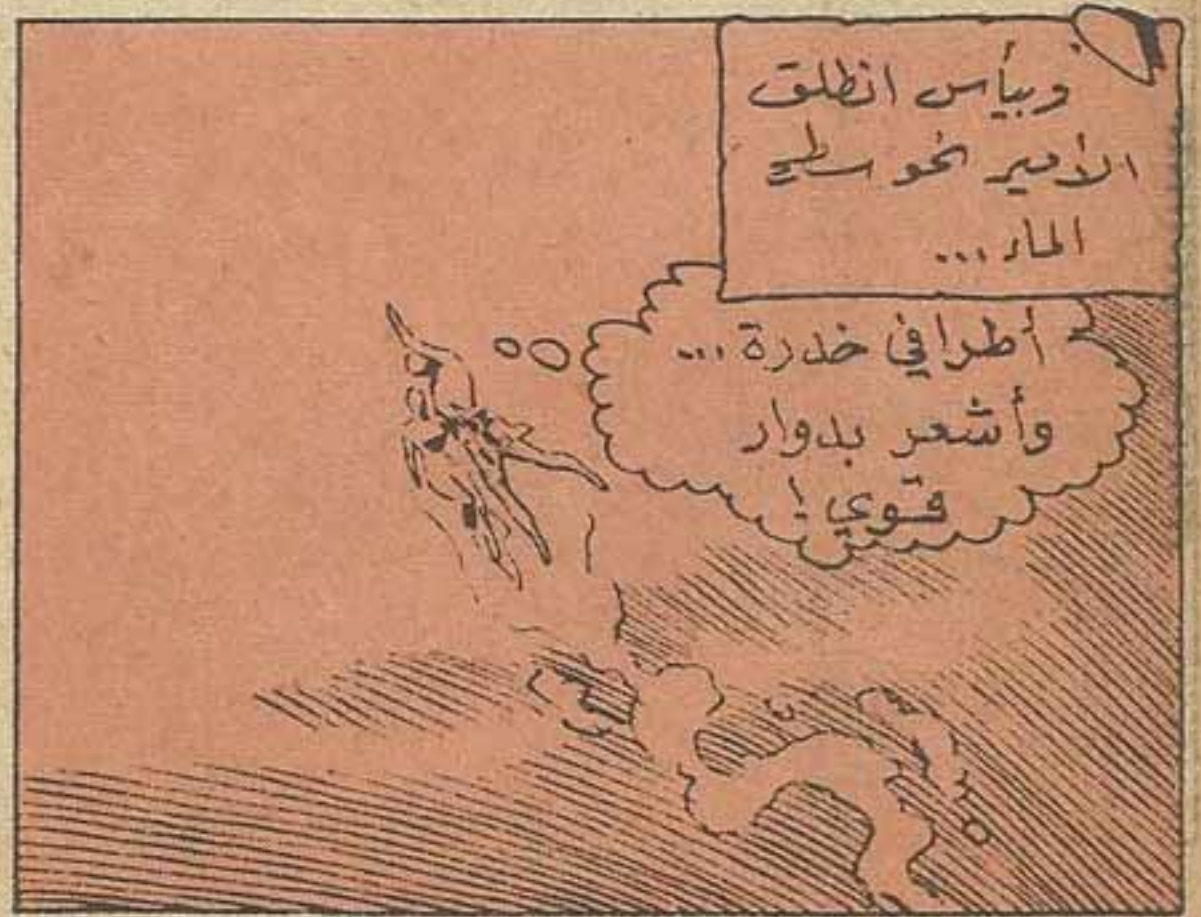 وبيأس انطلق
الأمير نحو سطح
الماء...
أطرافي خدرة ...
وأشعر بدوار
قوي !